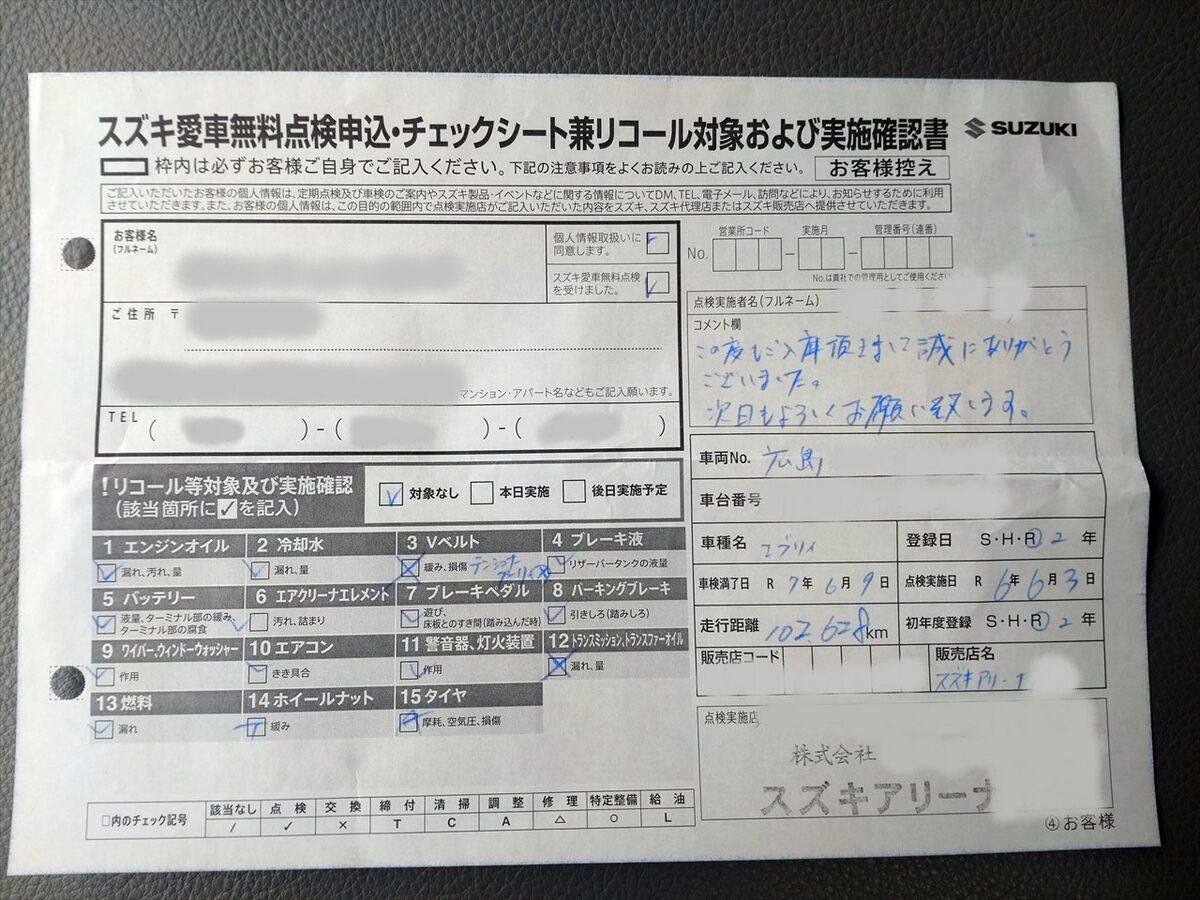 スズキ愛車無料点検申込・チェックシート兼リコール対象および実施確認書
SUZUKI
枠内は必ずお客様ご自身でご記入ください。下記の注意事項をよくお読みの上ご記入ください。
お客様控え
ご記入いただいたお客様の個人情報は、定期点検及び車検のご案内やスズキ製品・イベントなどに関する情報についてDM、TEL、電子メール、訪問などにより、お知らせするために利用
させていただきます。また、お客様の個人情報は、この目的の範囲内で点検実施店がご記入いただいた内容をスズキ、スズキ代理店またはスズキ販売店へ提供させていただきます。
お客様名
(フルネーム)
個人情報取扱いに
同意します。
スズキ愛車無料点検
を受けました。 ✓
ご住所 〒
マンション・アパート名などもご記入願います。
TEL ( )-( )-( )
営業所コード 実施月 管理番号(連番)
No. - -
No.は貴社での管理用としてご使用ください
点検実施者名(フルネーム)
コメント欄
この度もご入庫頂きまして誠にありがとう
ございました。
次回もよろしくお願い致します。
車両No. 広島
車台番号
車種名 エブリィ
登録日 S・H・R 2 年
車検満了日 R 7年 6月 9日
点検実施日 R 6年 6月 3日
走行距離 102,628km
初年度登録 S・H・R 2 年
販売店コード
販売店名
スズキアリーナ
点検実施店
株式会社
スズキアリーナ
!リコール等対象及び実施確認
(該当箇所に✓を記入)
✓ 対象なし 本日実施 後日実施予定
1 エンジンオイル
✓ 漏れ、汚れ、量
2 冷却水
✓ 漏れ、量
3 Vベルト
× 緩み、損傷
4 ブレーキ液
✓ リザーバータンクの液量
5 バッテリー
✓ 液量、ターミナル部の緩み、
ターミナル部の腐食
6 エアクリーナエレメント
✓ 汚れ、詰まり
7 ブレーキペダル
✓ 遊び、
床板とのすき間(踏み込んだ時)
8 パーキングブレーキ
✓ 引きしろ(踏みしろ)
9 ワイパー、ウィンドーウォッシャー
✓ 作用
10 エアコン
✓ きき具合
11 警音器、灯火装置
✓ 作用
12 トランスミッション、トランスファーオイル
× 漏れ、量
13 燃料
✓ 漏れ
14 ホイールナット
T 緩み
15 タイヤ
摩耗、空気圧、損傷
□内のチェック記号
該当なし 点検 交換 締付 清掃 調整 修理 特定整備 給油
/ ✓ × T C A △ ○ L
④お客様